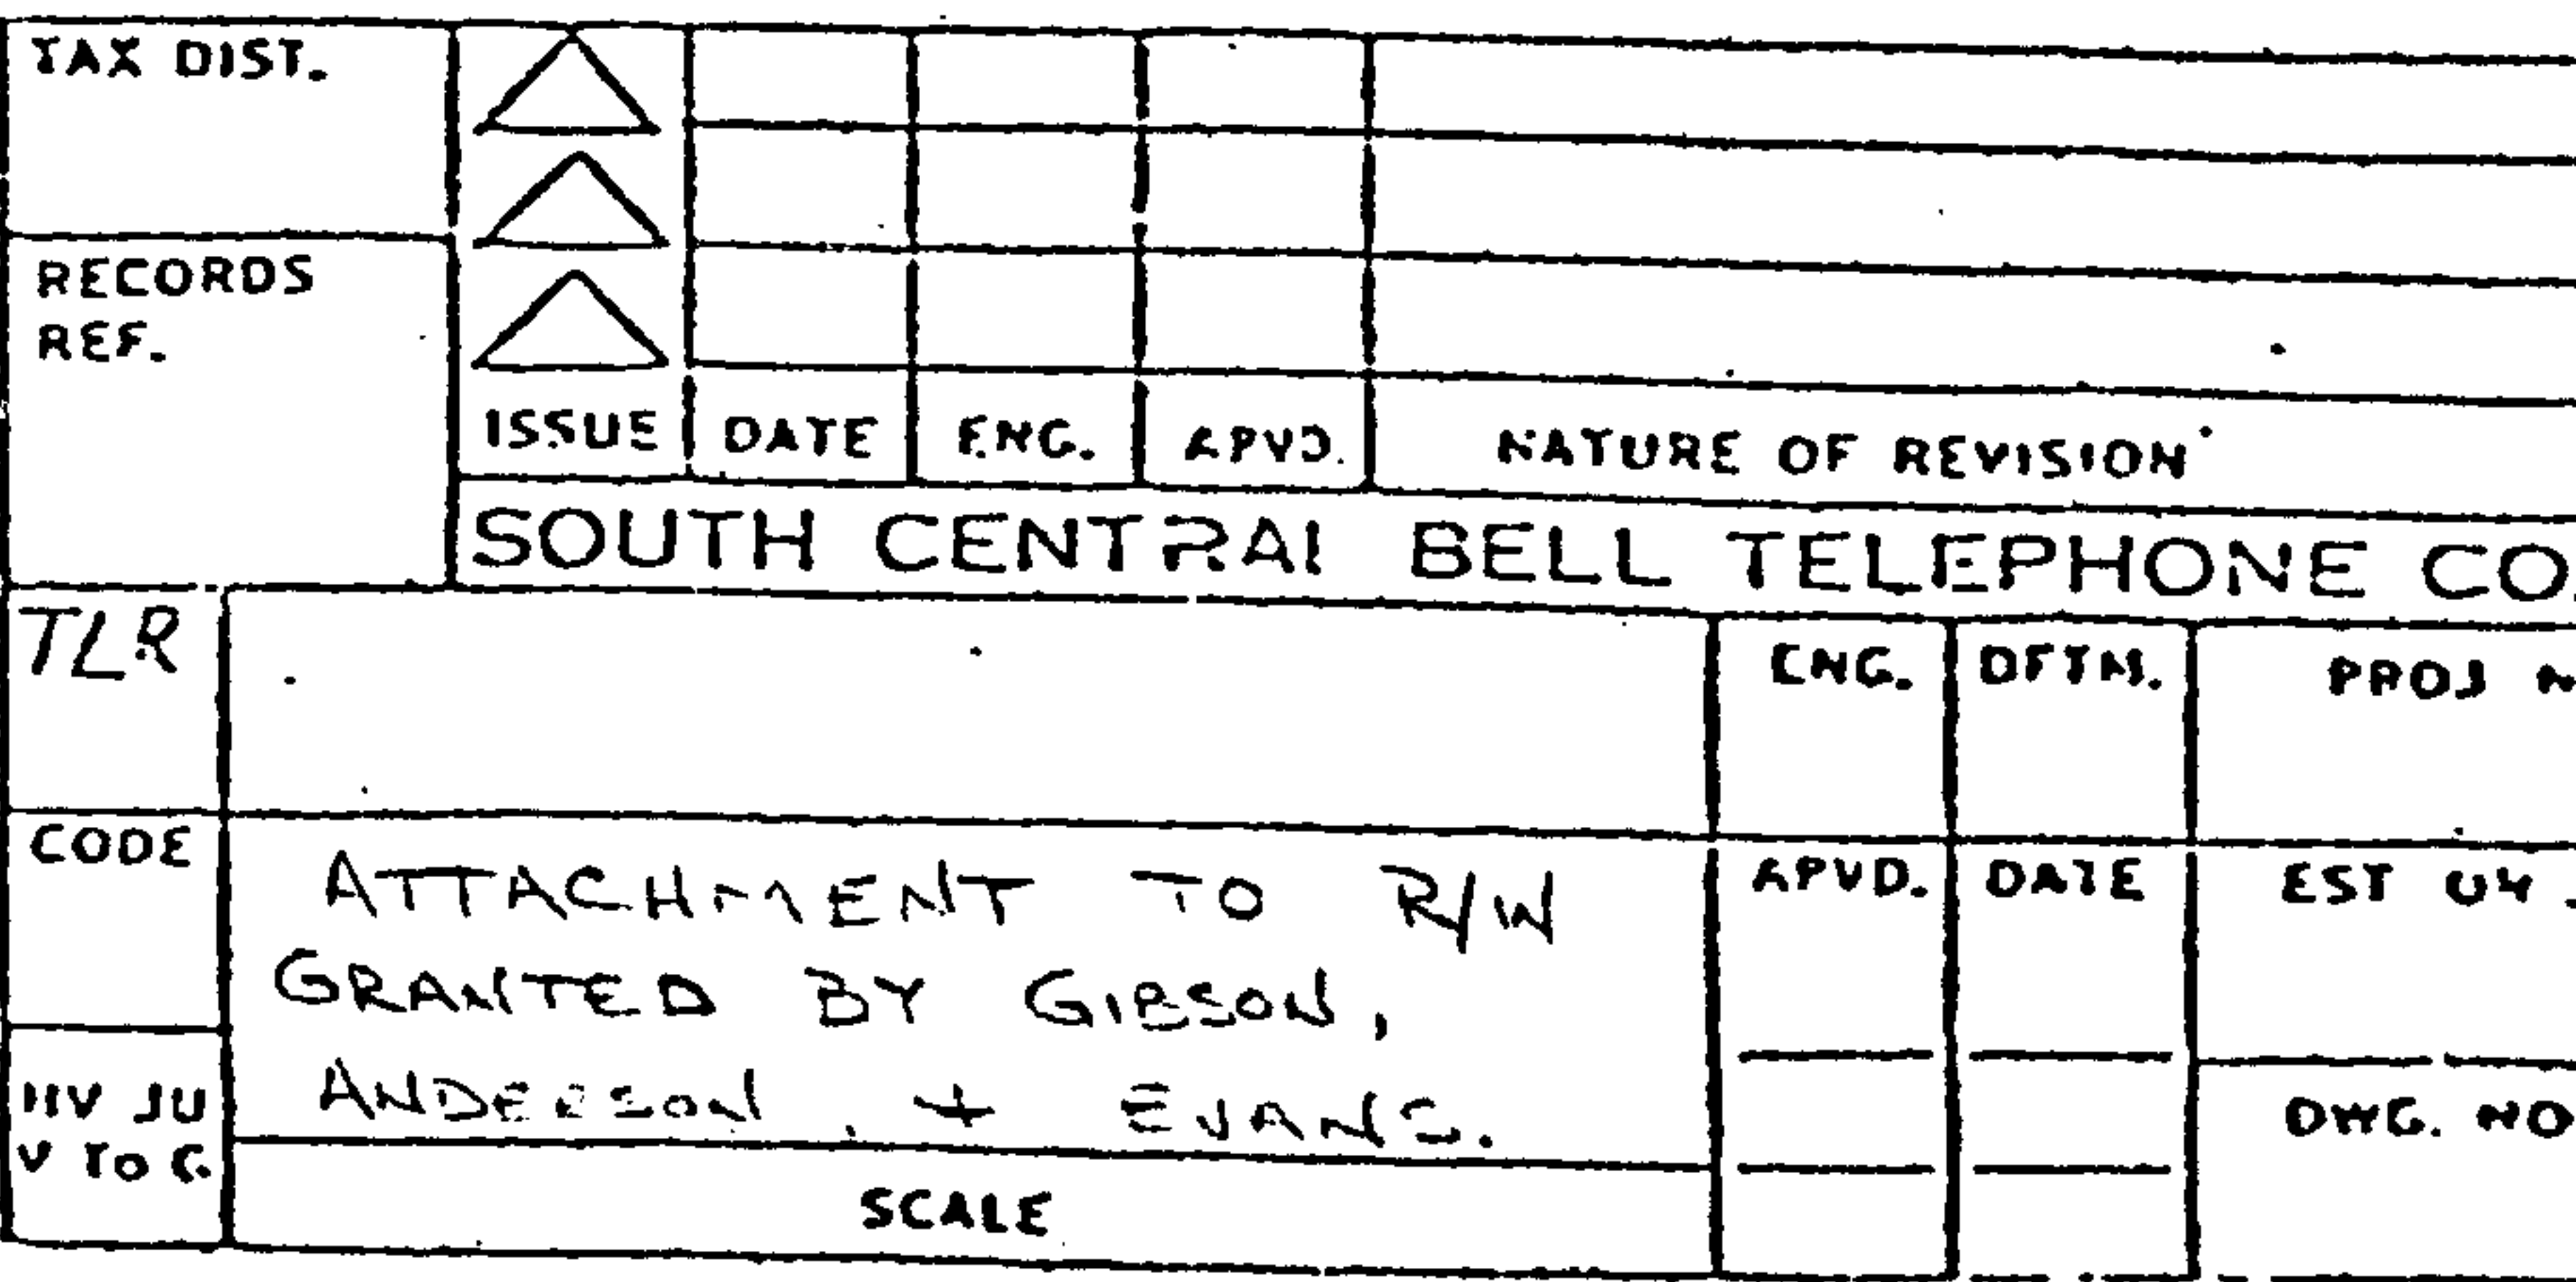 TAX DIST.
RECORDS
REF.
ISSUE DATE ENG. APVD. NATURE OF REVISION
SOUTH CENTRAL BELL TELEPHONE CO.
TLR
ENG. DFTM. PROJ N
CODE
APVD. DATE EST
ATTACHMENT TO R/W
GRANTED BY GIBSON,
ANDERSON, + EVANS.
DWG. NO
V TO G
SCALE